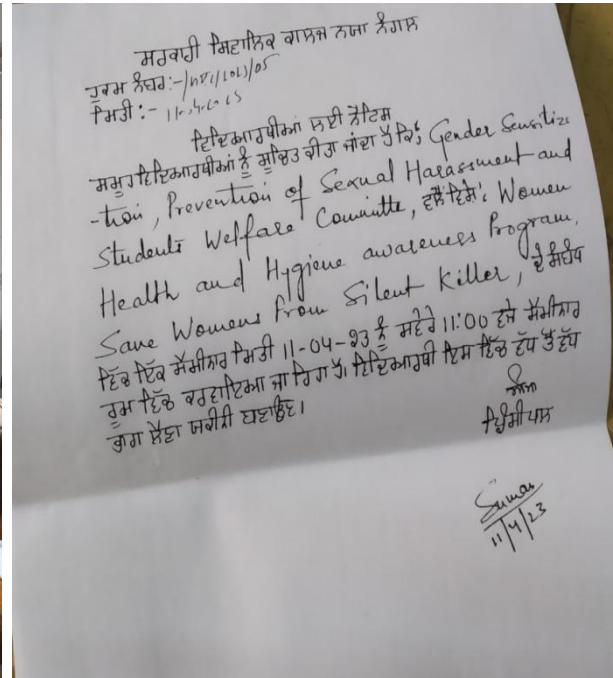 ਸਰਕਾਰੀ ਸ਼ਿਵਾਲਿਕ ਕਾਲਜ ਨਯਾ ਨੰਗਲ
ਹੁਕਮ ਨੰਬਰ:-
ਮਿਤੀ:-
ਵਿਦਿਆਰਥੀਆਂ ਲਈ ਨੋਟਿਸ
ਸਮੂਹ ਵਿਦਿਆਰਥੀਆਂ ਨੂੰ ਸੂਚਿਤ ਕੀਤਾ ਜਾਂਦਾ ਹੈ ਕਿ, Gender Sensitiza
-tion, Prevention of Sexual Harassment and
Students Welfare Committe, ਵਲੋਂ ਵਿਸ਼ੇ: Women
Health and Hygiene awareness Program,
Save Womens from Silent Killer, ਦੇ ਸੰਬੰਧ
ਵਿੱਚ ਇੱਕ ਸੈਮੀਨਾਰ ਮਿਤੀ 11-04-23 ਨੂੰ ਸਵੇਰੇ 11:00 ਵਜੇ ਸੈਮੀਨਾਰ
ਰੂਮ ਵਿੱਚ ਕਰਵਾਇਆ ਜਾ ਰਿਹਾ ਹੈ। ਵਿਦਿਆਰਥੀ ਇਸ ਵਿੱਚ ਵੱਧ ਤੋਂ ਵੱਧ
ਭਾਗ ਲੈਣਾ ਯਕੀਨੀ ਬਣਾਉਣ।
ਪ੍ਰਿੰਸੀਪਲ
Suman
11/4/23